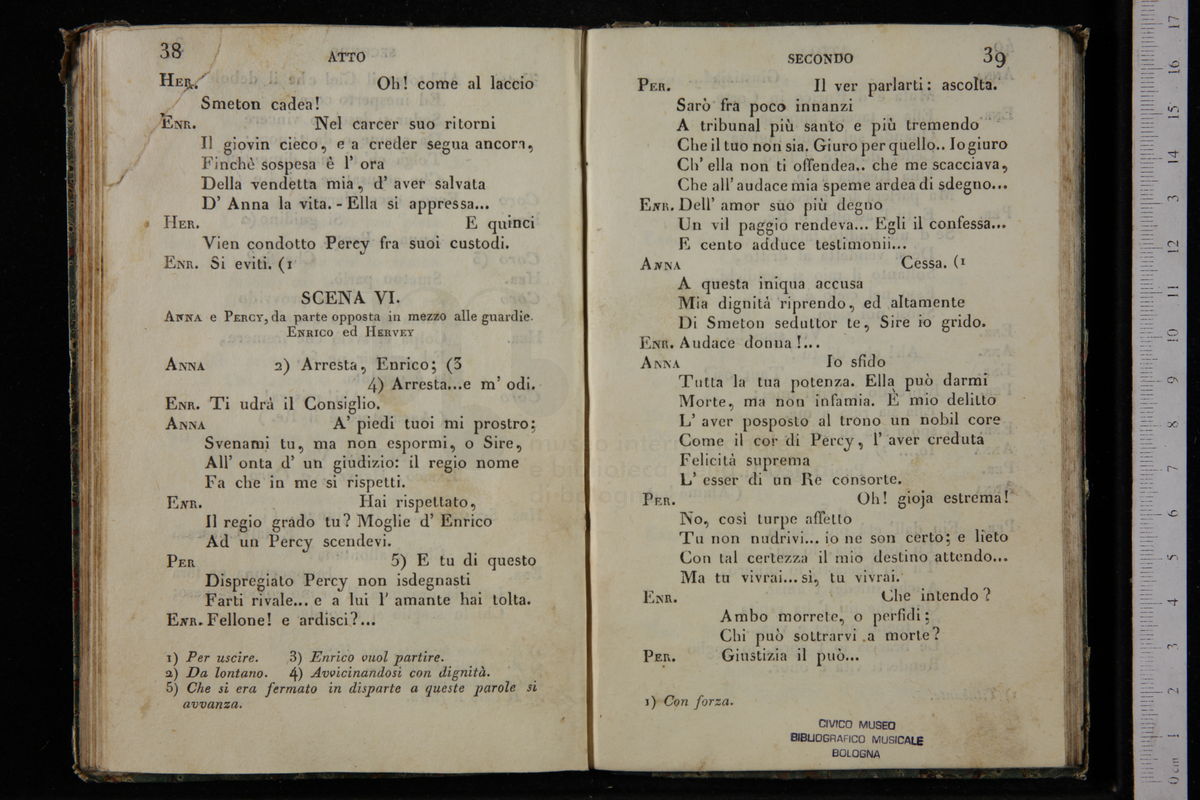 38
ATTO
HER. Oh! come al laccio
Smeton cadea!
ENR. Nel carcer suo ritorni
Il giovin cieco, e a creder segua ancora,
Finchè sospesa è l' ora
Della vendetta mia, d' aver salvata
D' Anna la vita. - Ella si appressa...
HER. E quinci
Vien condotto Percy fra suoi custodi.
ENR. Si eviti. (1
SCENA VI.
ANNA e PERCY, da parte opposta in mezzo alle guardie.
ENRICO ed HERVEY
ANNA 2) Arresta, Enrico; (3
4) Arresta...e m' odi.
ENR. Ti udrà il Consiglio.
ANNA A' piedi tuoi mi prostro;
Svenami tu, ma non espormi, o Sire,
All' onta d' un giudizio: il regio nome
Fa che in me si rispetti.
ENR. Hai rispettato,
Il regio grado tu? Moglie d' Enrico
Ad un Percy scendevi.
PER 5) E tu di questo
Dispregiato Percy non isdegnasti
Farti rivale... e a lui l' amante hai tolta.
ENR. Fellone! e ardisci?...
1) Per uscire. 3) Enrico vuol partire.
2) Da lontano. 4) Avvicinandosi con dignità.
5) Che si era fermato in disparte a queste parole si
avvanza.
SECONDO
39
PER. Il ver parlarti: ascolta.
Sarò fra poco innanzi
A tribunal più santo e più tremendo
Che il tuo non sia. Giuro per quello.. Io giuro
Ch' ella non ti offendea.. che me scacciava,
Che all' audace mia speme ardea di sdegno...
ENR. Dell' amor suo più degno
Un vil paggio rendeva... Egli il confessa...
E cento adduce testimonii...
ANNA Cessa. (1
A questa iniqua accusa
Mia dignità riprendo, ed altamente
Di Smeton seduttor te, Sire io grido.
ENR. Audace donna!...
ANNA Io sfido
Tutta la tua potenza. Ella può darmi
Morte, ma non infamia. È mio delitto
L' aver posposto al trono un nobil core
Come il cor di Percy, l' aver creduta
Felicità suprema
L' esser di un Re consorte.
PER. Oh! gioja estrema!
No, così turpe affetto
Tu non nudrivi... io ne son certo; e lieto
Con tal certezza il mio destino attendo...
Ma tu vivrai... sì, tu vivrai.
ENR. Che intendo?
Ambo morrete, o perfidi;
Chi può sottrarvi a morte?
PER. Giustizia il può...
1) Con forza.
CIVICO MUSEO
BIBLIOGRAFICO MUSICALE
BOLOGNA
0 cm 1 2 3 4 5 6 7 8 9 10 11 12 13 14 15 16 17